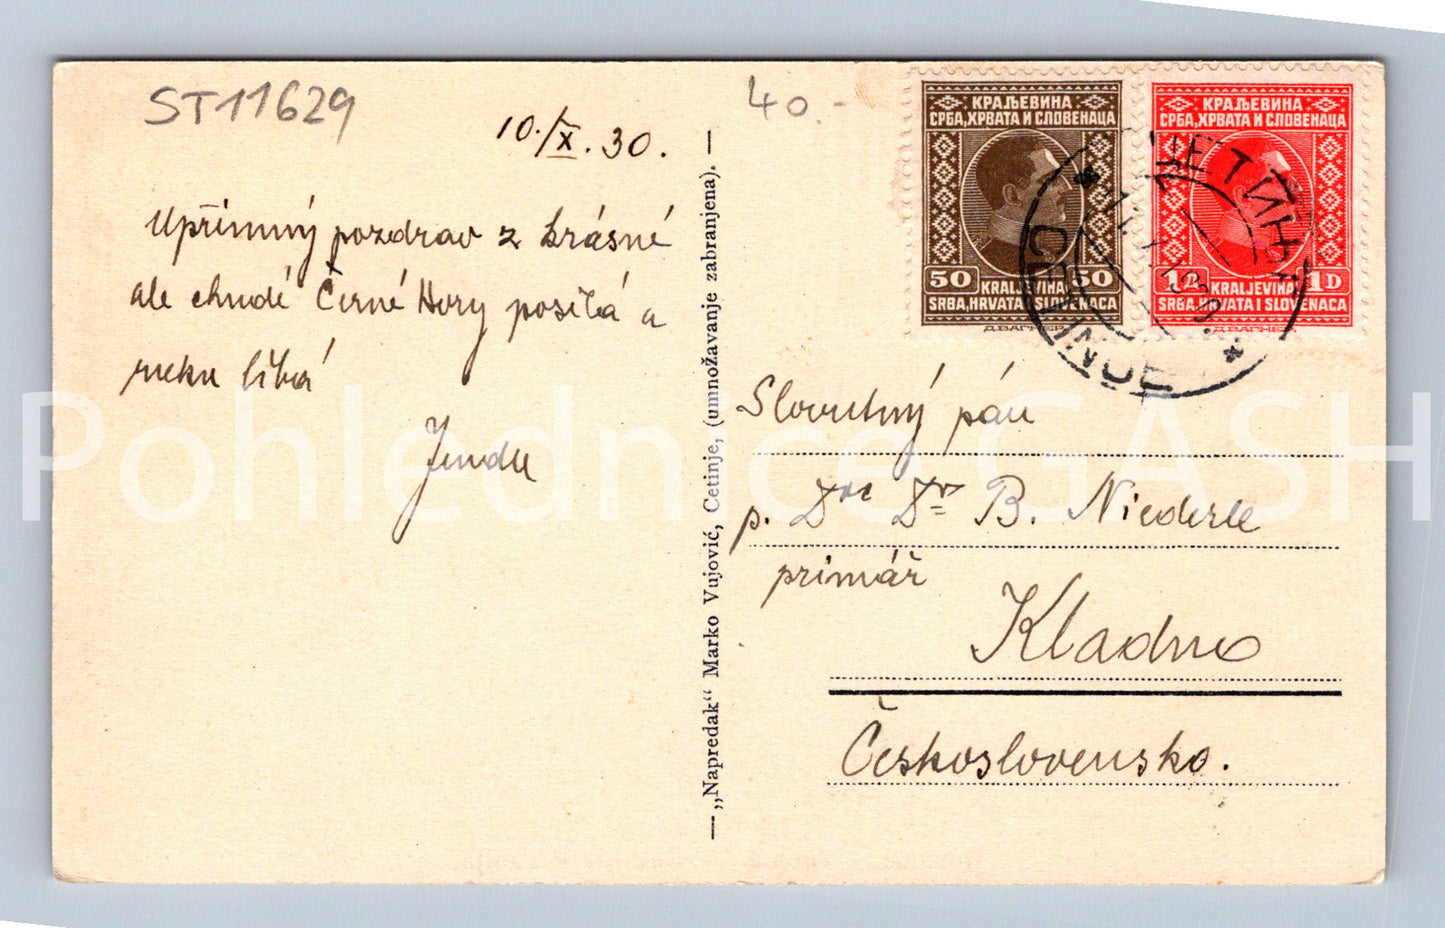 ST11629
40.-
10./X. 30.
Upřímný pozdrav z krásné
ale chudé Černé Hory posílá a
ruku líbá
Jenda
—„Napredak“ Marko Vujović, Cetinje, (umnožavanje zabranjena). —
КРАЉЕВИНА
СРБА, ХРВАТА И СЛОВЕНАЦА
50 50
KRALJEVINA
SRBA, HRVATA I SLOVENACA
Д.ВАГНЕР
КРАЉЕВИНА
СРБА, ХРВАТА И СЛОВЕНАЦА
1D 1D
KRALJEVINA
SRBA, HRVATA I SLOVENACA
Д.ВАГНЕР
ЦЕТИЊЕ
CETINJE
Slovutný pán
p. Dr B. Niederle
primář
Kladno
Československo.
Pohlednice GASH